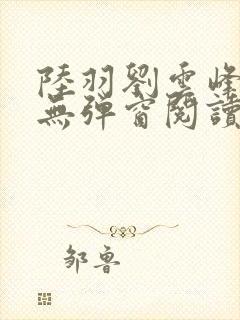 陸羽劉雲峰
無彈窗閱讀
鄒魯